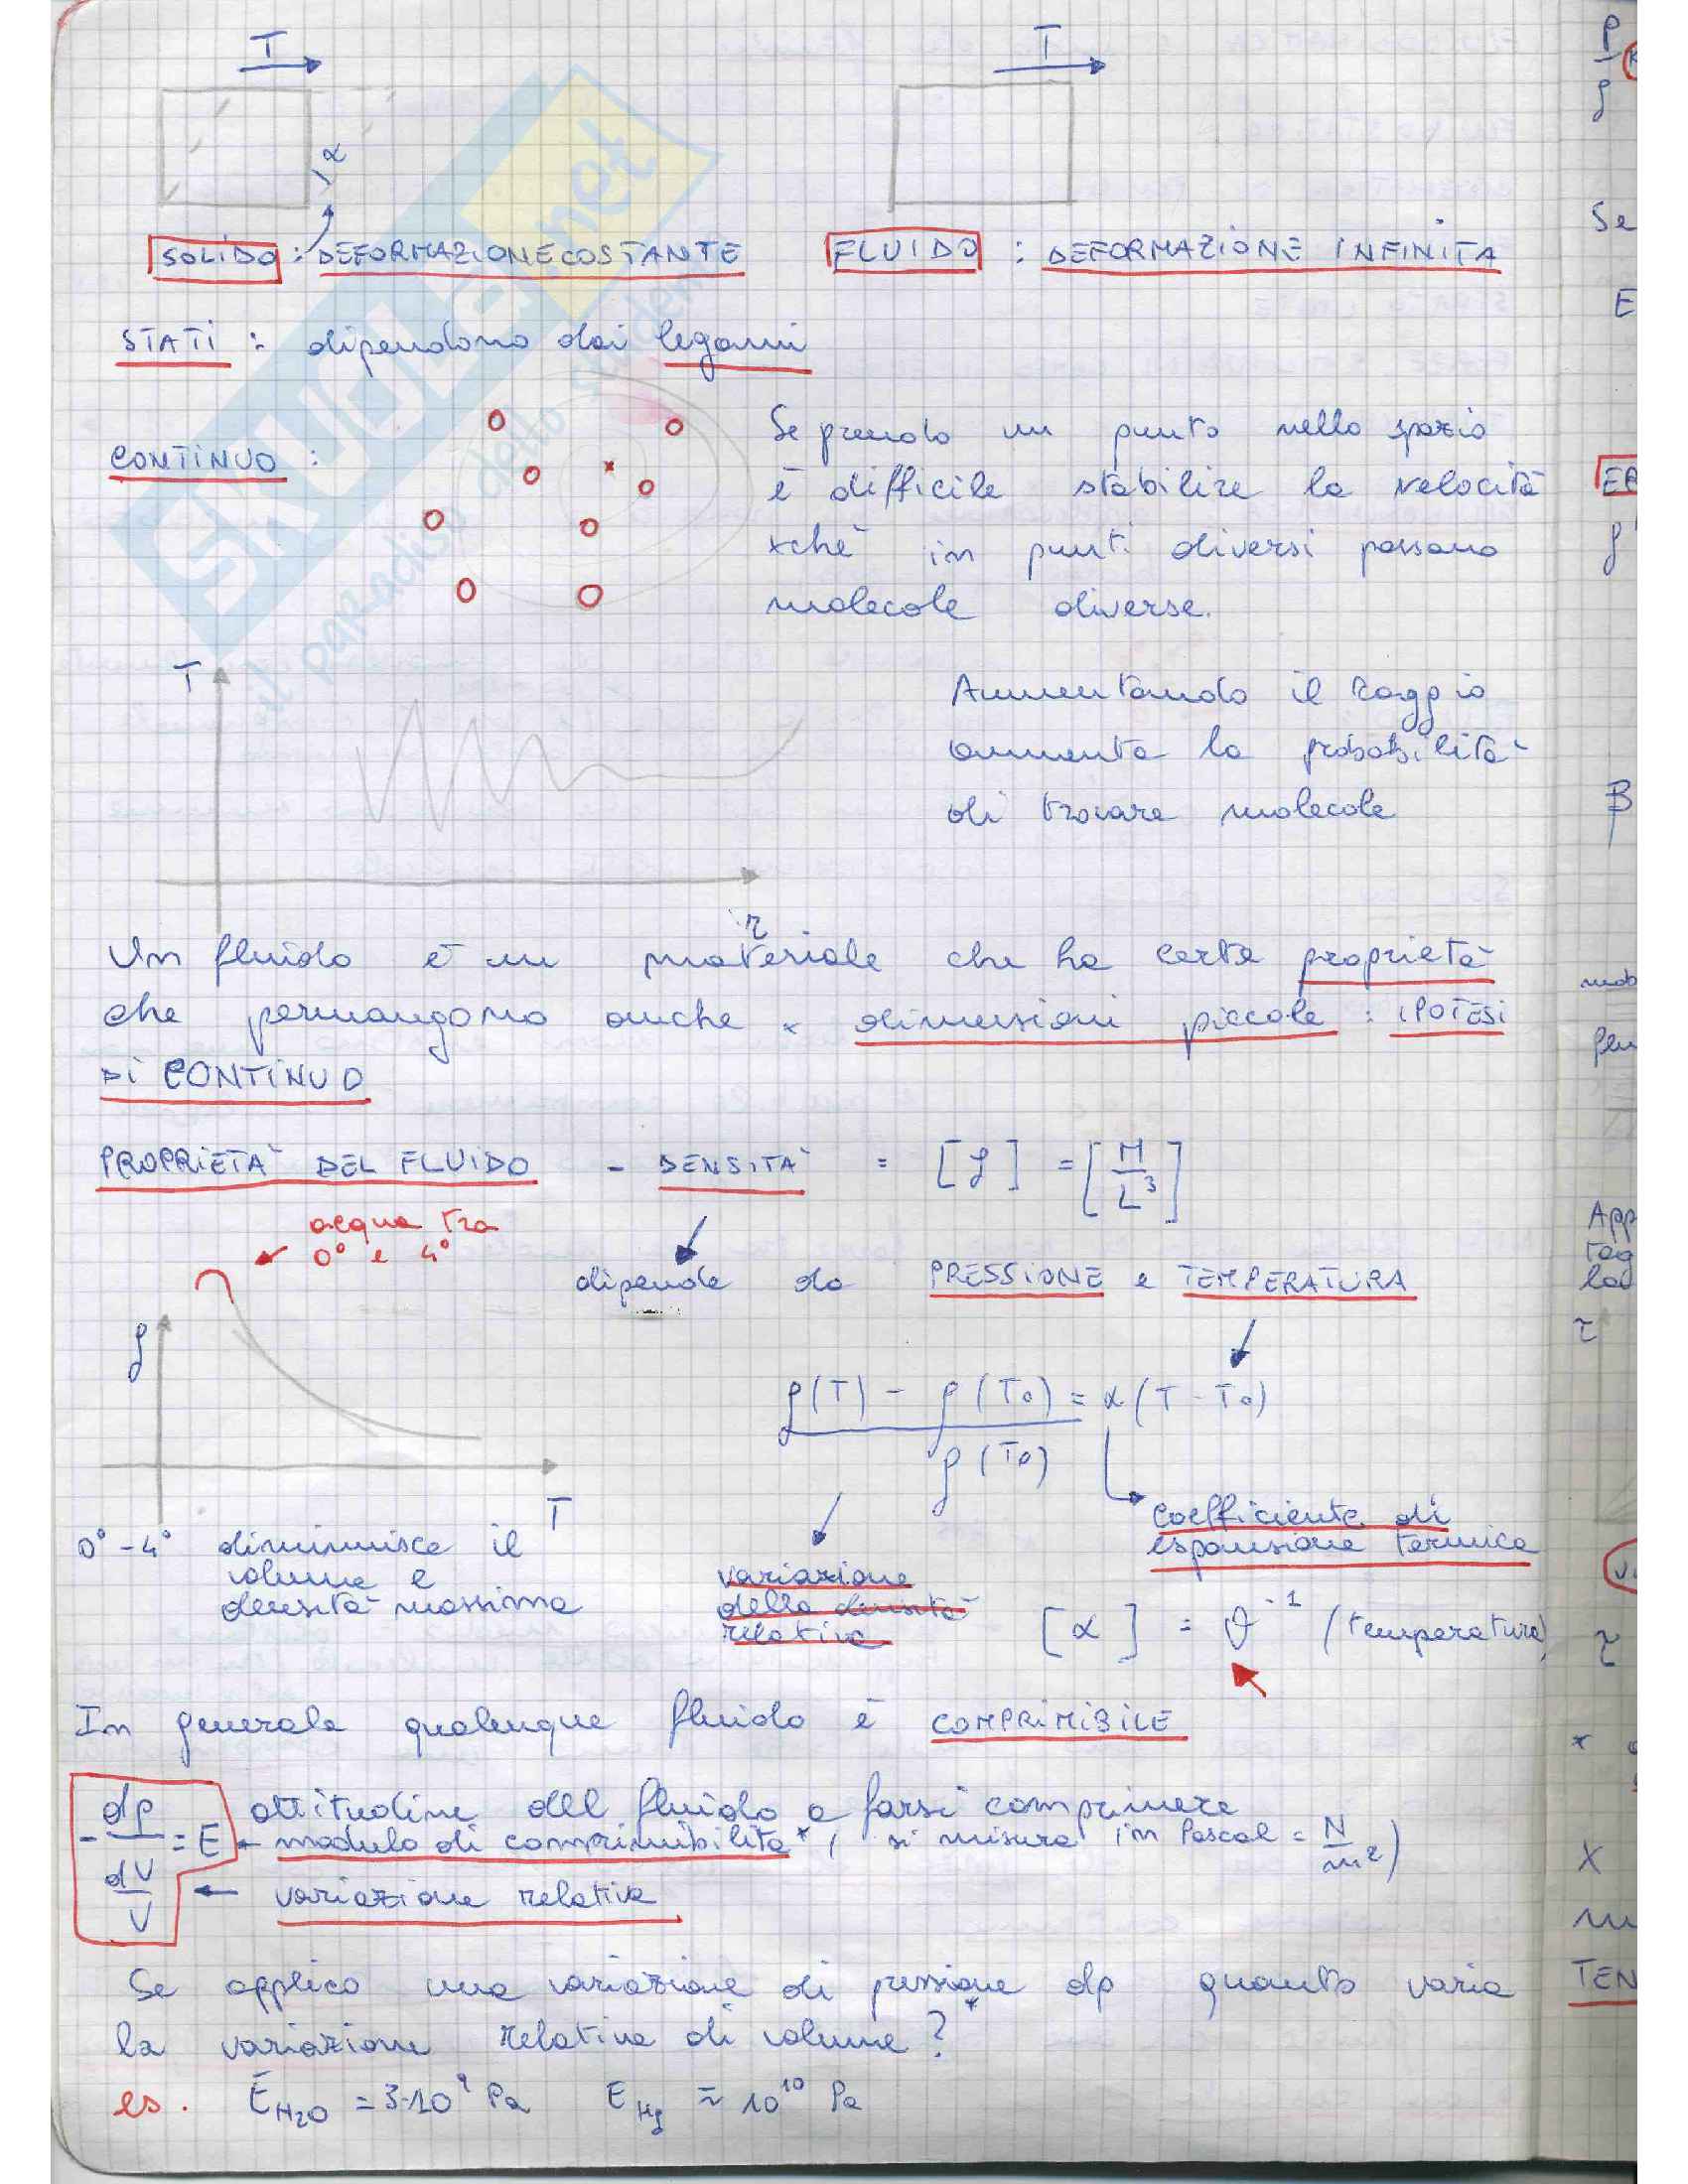 T T
α
SOLIDO : DEFORMAZIONE COSTANTE FLUIDO : DEFORMAZIONE INFINITA
STATI : dipendono dai legami
CONTINUO :
Se prendo un punto nello spazio
è difficile stabilire la velocità
xchè in punti diversi passano
molecole diverse.
T
Aumentando il raggio
aumenta la probabilità
di trovare molecole
r
Un fluido è un materiale che ha certe proprietà
che permangono anche x dimensioni piccole : IPOTESI
DI CONTINUO
PROPRIETA' DEL FLUIDO - DENSITA' = [ρ] = [M/L³]
acqua tra
0° e 4°
dipende da PRESSIONE e TEMPERATURA
ρ
ρ(T) - ρ(T0) = α(T - T0)
ρ(T0)
T
coefficiente di
espansione termica
0° - 4° diminuisce il
volume e
densità massima
variazione
della densità
relativa
[α] = ϑ⁻¹ (temperatura)
In generale qualunque fluido è COMPRIMIBILE
- dp / (dV/V) = E
attitudine del fluido a farsi comprimere
modulo di comprimibilità*, si misura in Pascal = N/m²)
variazione relativa
Se applico una variazione di pressione dp quanto varia
la variazione relativa di volume?*
es. E H2O = 3·10⁹ Pa E Hg ≈ 10¹⁰ Pa
SKUOLA.net
il paradiso dello studente
P
ρ
Se
E
β
App
tag
la
τ
τ
x
TEN